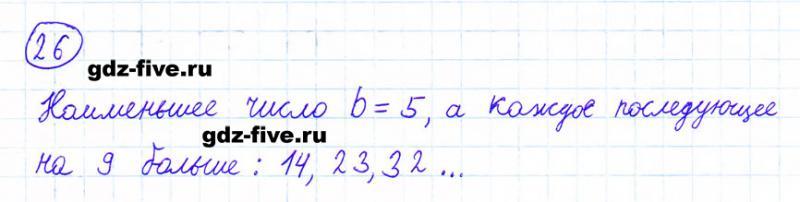 26
gdz-five.ru
Наименьшее число b = 5, а каждое последующее
gdz-five.ru
на 9 больше: 14, 23, 32 ...